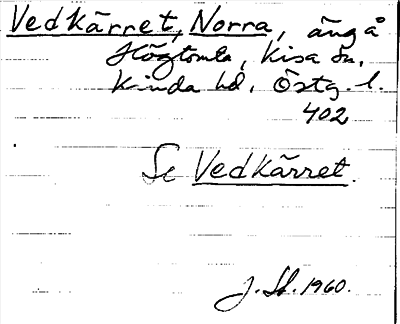 Vedkärret, Norra, äng å
Högtomta, Kisa sn,
Kinda hd. Östg. l.
402
Se Vedkärret.
J. St. 1960.